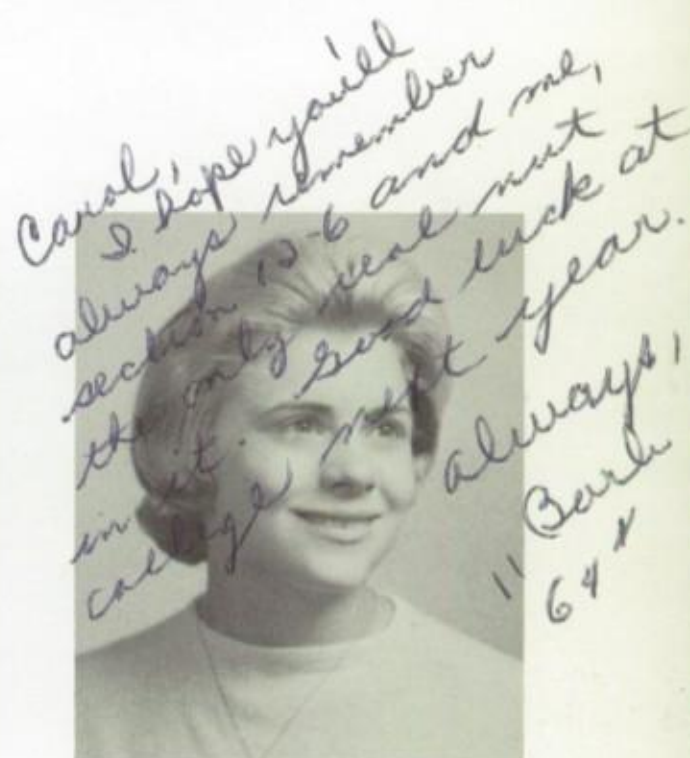 Carol,
I hope you'll
always remember
section 12-6 and me,
the only real nut
in it. Good luck at
college next year.
always,
Barb
"64"